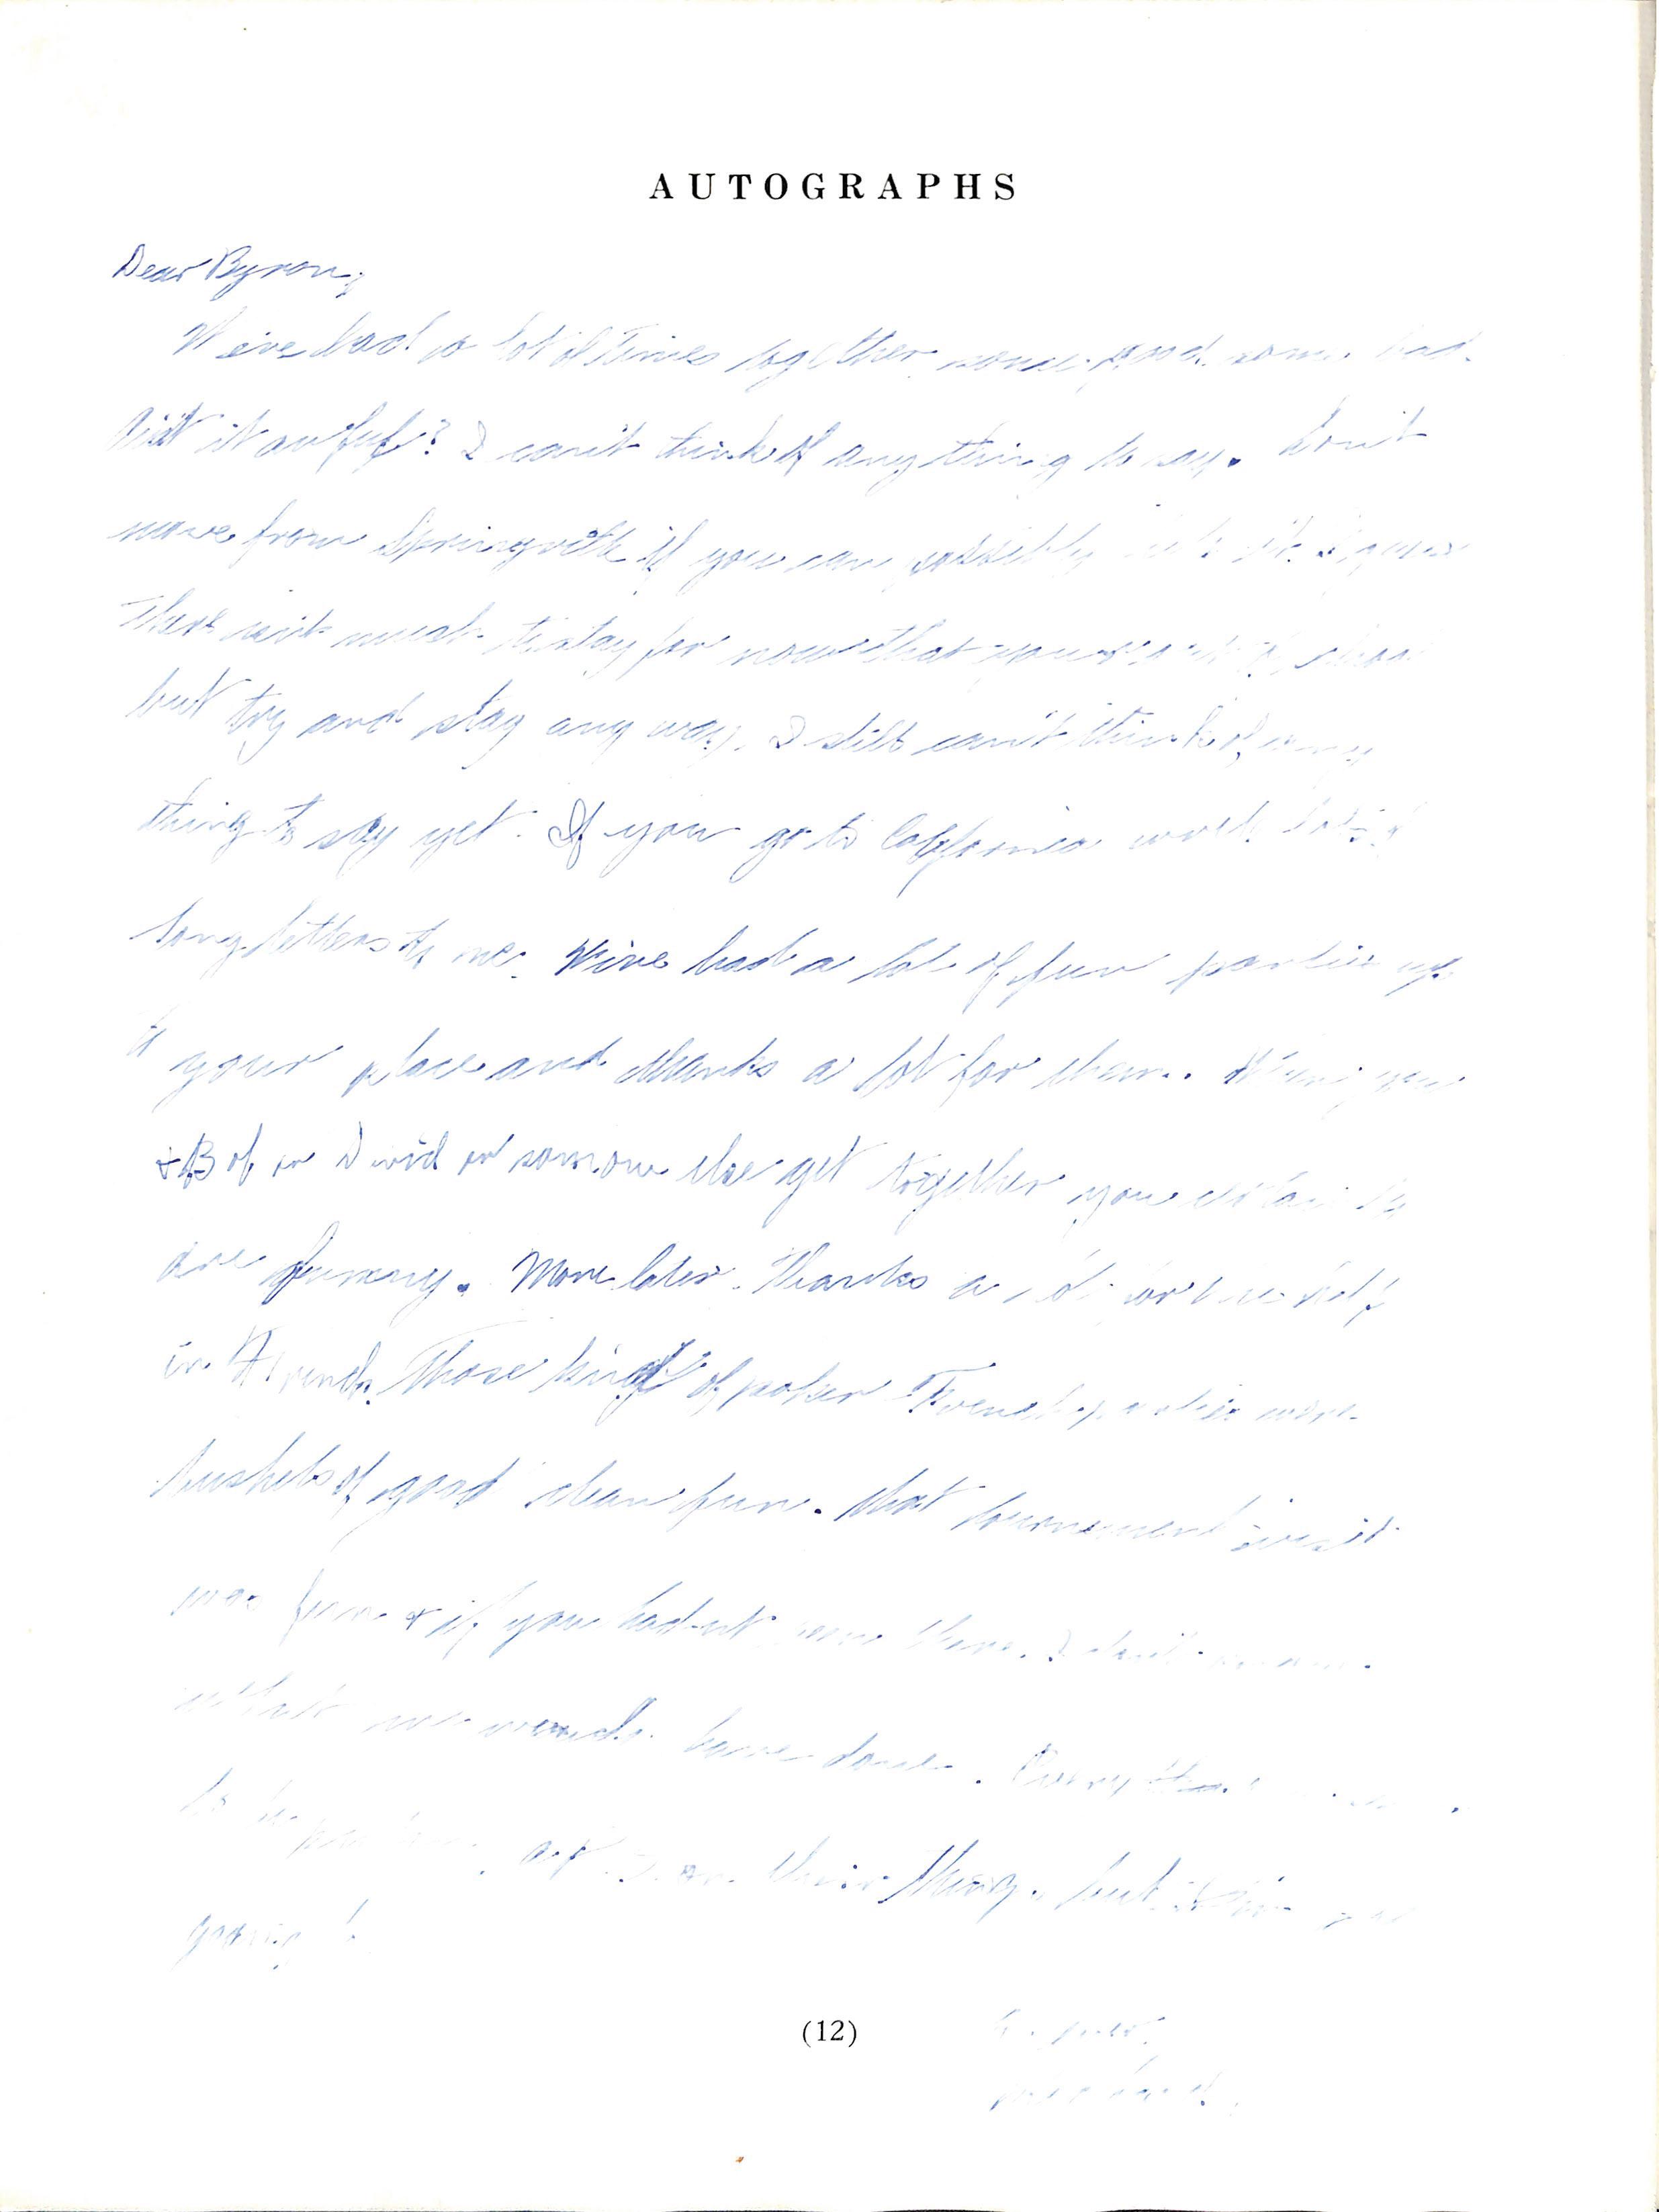 AUTOGRAPHS
Dear Byron,
We've had a lot of times together some good some bad
isn't it awful? I can't think of any thing to say. Don't
move from Springville if you can possibly help it. I guess
there isn't much to stay for now that you're out of school
but try and stay any way. I still can't think of any
thing to say yet. If you go to California write
long letters to me. We've had a lot of fun parties up
to your place and thanks a lot for them. When you
+ B of or David or someone else get together you certainly
are funny. More later. Thanks a lot for the help
in French. Those kind of poker French parties were
bushels of good clean fun. That tournement
was fun + if you hadn't been there. I don't know
what we would have done. Every
but
going!
(12)